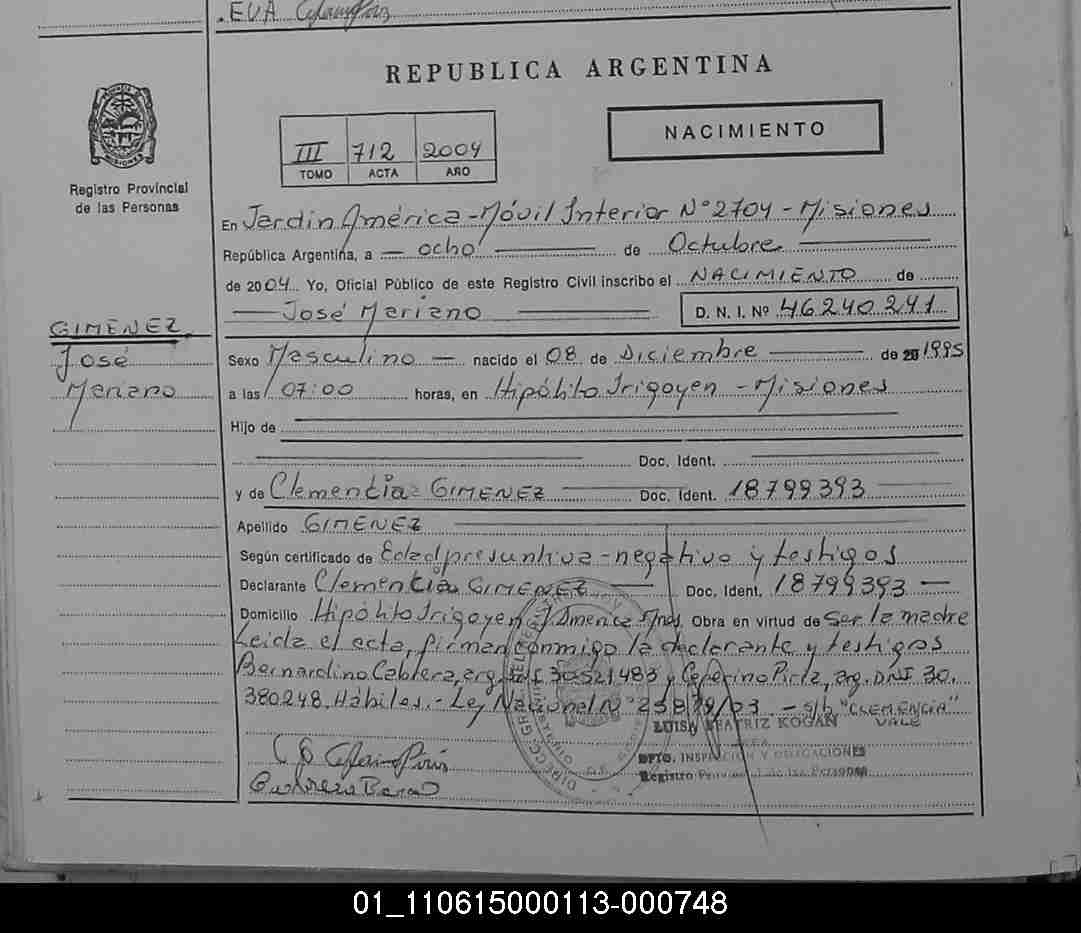 .EVA
REPUBLICA ARGENTINA
NACIMIENTO
III 712 2004
TOMO ACTA AÑO
PROVINCIA DE MISIONES
Registro Provincial
de las Personas
En Jardin América - Móvil Interior Nº 2704 - Misiones
República Argentina, a — ocho — de Octubre —
de 2004 Yo, Oficial Público de este Registro Civil inscribo el NACIMIENTO de
— José Mariano — D. N. I. Nº 46240291
GIMENEZ,
José
Mariano
Sexo Masculino — nacido el 08 de Diciembre — de 20 1995
a las 07:00 horas, en Hipólito Irigoyen - Misiones
Hijo de
Doc. Ident.
y de Clemencia GIMENEZ — Doc. Ident. 18799393
Apellido GIMENEZ
Según certificado de Edad presuntiva - negativo y testigos
Declarante Clemencia GIMENEZ — Doc. Ident. 18799393 —
Domicilio Hipólito Irigoyen J. America Mnes. Obra en virtud de ser la madre
Leida el acta, firman conmigo la declarante y testigos
Bernardino Cabrera, arg. DNI 30521483 y Ceferino Piris, arg. DNI 30.
380248. Hábiles. - Ley Nacional Nº 25819/03. - S/b "CLEMENCIA"
VALE
LUISA BEATRIZ KOGAN
DPTO. INSPECCION Y DELEGACIONES
Registro Provincial de las Personas
01_110615000113-000748